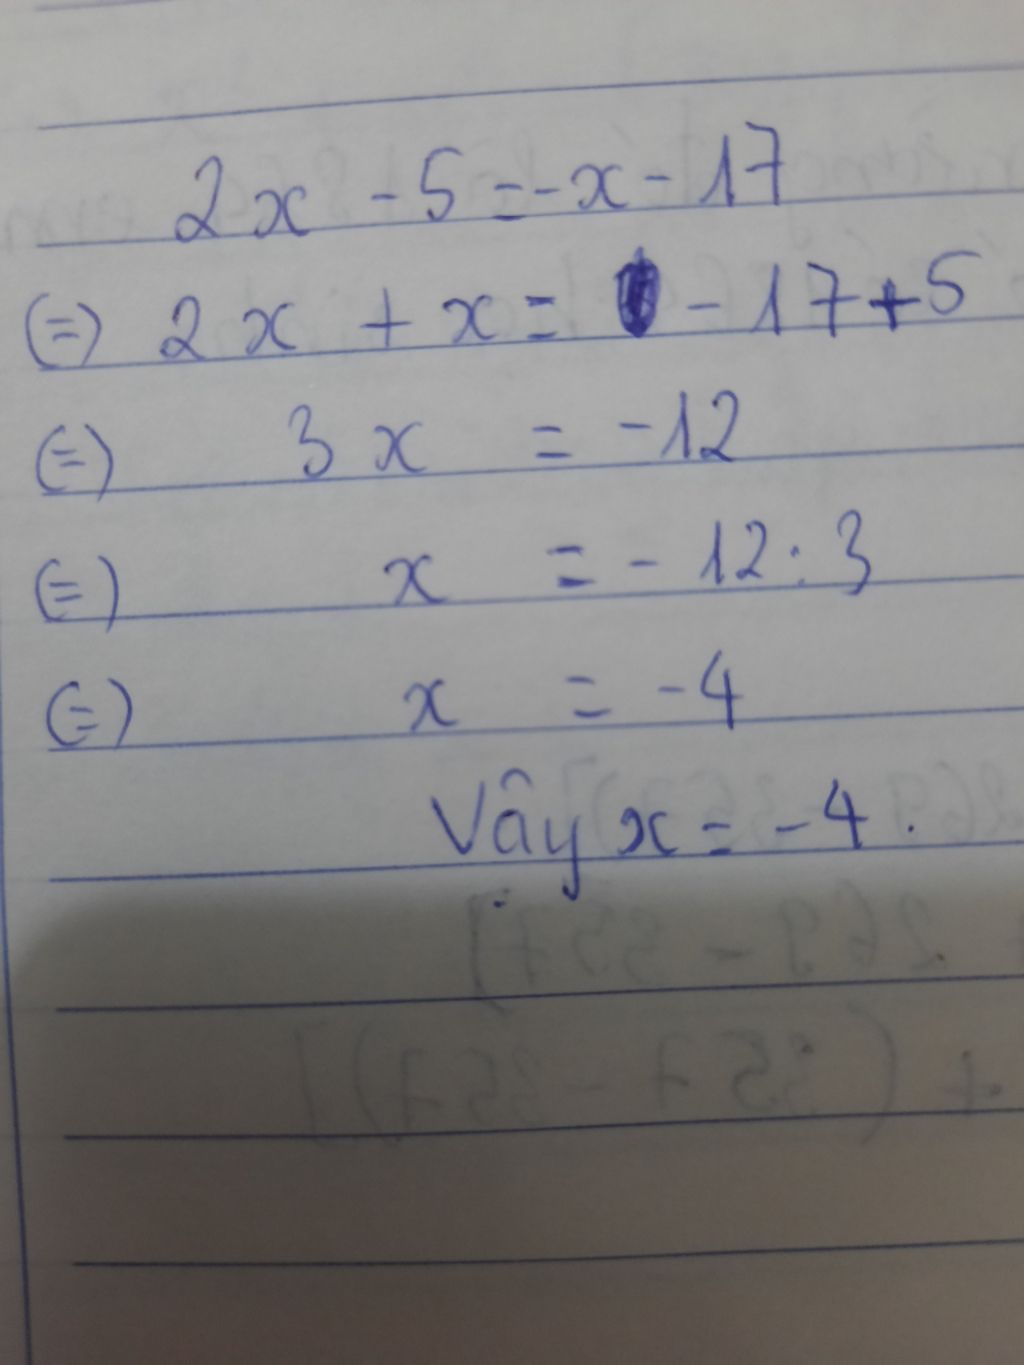 2x - 5 = -x - 17
(=) 2x + x = - 17 + 5
(=) 3x = -12
(=) x = - 12 : 3
(=) x = -4
Vậy x = -4.